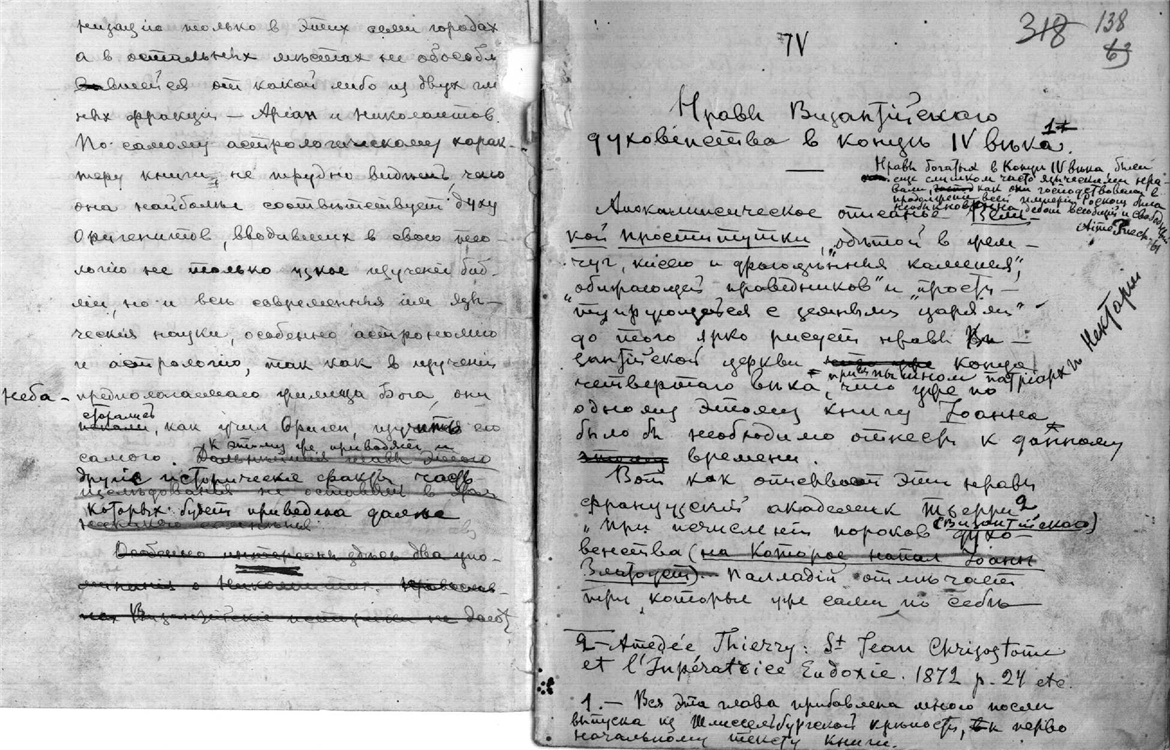 низацію только в этих семи городах
а в остальных мѣстах не обособля
вшейся от какой либо из двух гла
вных фракцій — Аріан и Николаитов.
По самому астрологическому харак-
теру книги, не трудно видѣть, что
она наиболѣе соотвѣтствует духу
Оригенитов, вводивших в свою тео-
логію не только узкое изученіе биб-
ліи, но и всѣ современныя им язы-
ческія науки, особенно астрономію
и астрологію, так как в изученіи
неба — предполагаемаго жилища Бога, они
старались
, как учил Ориген, изучить его
самого.
к этому же приводят и
другіе историческіе факты, часть
которых будет приведена далѣе
Особенно интересны здѣсь два упо-
минанія о Николаитах.
Византійскіе историки не дают
318 138
63
IV
Нравы Византійскаго
духовенства в концѣ IV вѣка. 1
Нравы богатых в Концѣ IV вѣка были
еще слишком часто языческими нра-
вами, как они господствовали в
имперіи. Роскошь была
необыкновенна
Апокалипсическое описаніе Вели
кой проституткы, „одѣтой в жем-
чуг, виссон и драгоцѣнные каменья",
„обирающей праведников" и „прости-
туирующейся с земными царями"
до того ярко рисует нравы Ви-
зантійской церкви конца
четвертаго вѣка, что уже по
при пышном патріархѣ Нектаріи
одному этому книгу Іоанна
было бы необходимо отнести к данному
этому времени.
Вот как описывает эти нравы
французский академик Тьерри 2
„При исчисленіи пороков (Византійскаго) духо-
венства (на которое напал Іоанн
Златоуст) Палладій отмѣчает
три, которые уже сами по себѣ
2 — Amedée Thierry: St Jean Chrizostome
et l'Inpératrice Eudoxie. 1872 p. 24 etc.
1. — Вся эта глава прибавлена много послѣ
выпуска из Шлиссельбургской крѣпости, к перво
начальному тексту книги.